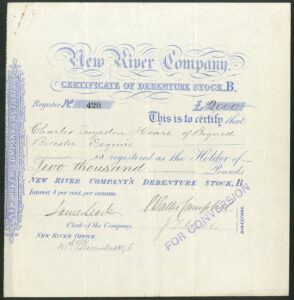 New River Company.
CERTIFICATE OF DEBENTURE STOCK, B.
Register No. 428 £2000
This is to certify that
Charles Twysden Hoare of Bignell
Bicester Esquire
is registered as the Holder of
Two thousand Pounds
NEW RIVER COMPANY'S DEBENTURE STOCK, B.
Interest 4 per cent. per annum.
Clerk of the Company
NEW RIVER OFFICE.
10th December 1896
DIRECTORS.
FOR CONVERSION